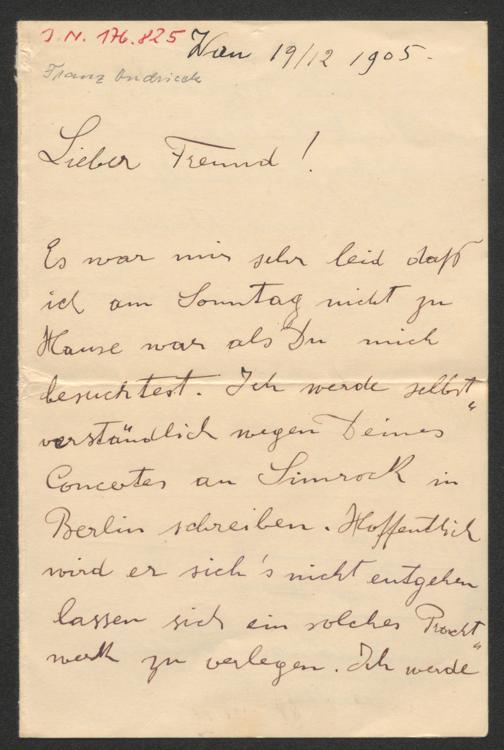 I. N. 176.825
Wien 19/12 1905.
Franz Ondricek
Lieber Freund!
Es war mir sehr leid daß
ich am Sonntag nicht zu
Hause war als Du mich
besuchtest. Ich werde selbst"
verständlich wegen Deines
Concertes an Simrock in
Berlin schreiben. Hoffentlich
wird er sich's nicht entgehen
lassen sich ein solches Pracht"
werk zu verlegen. Ich werde